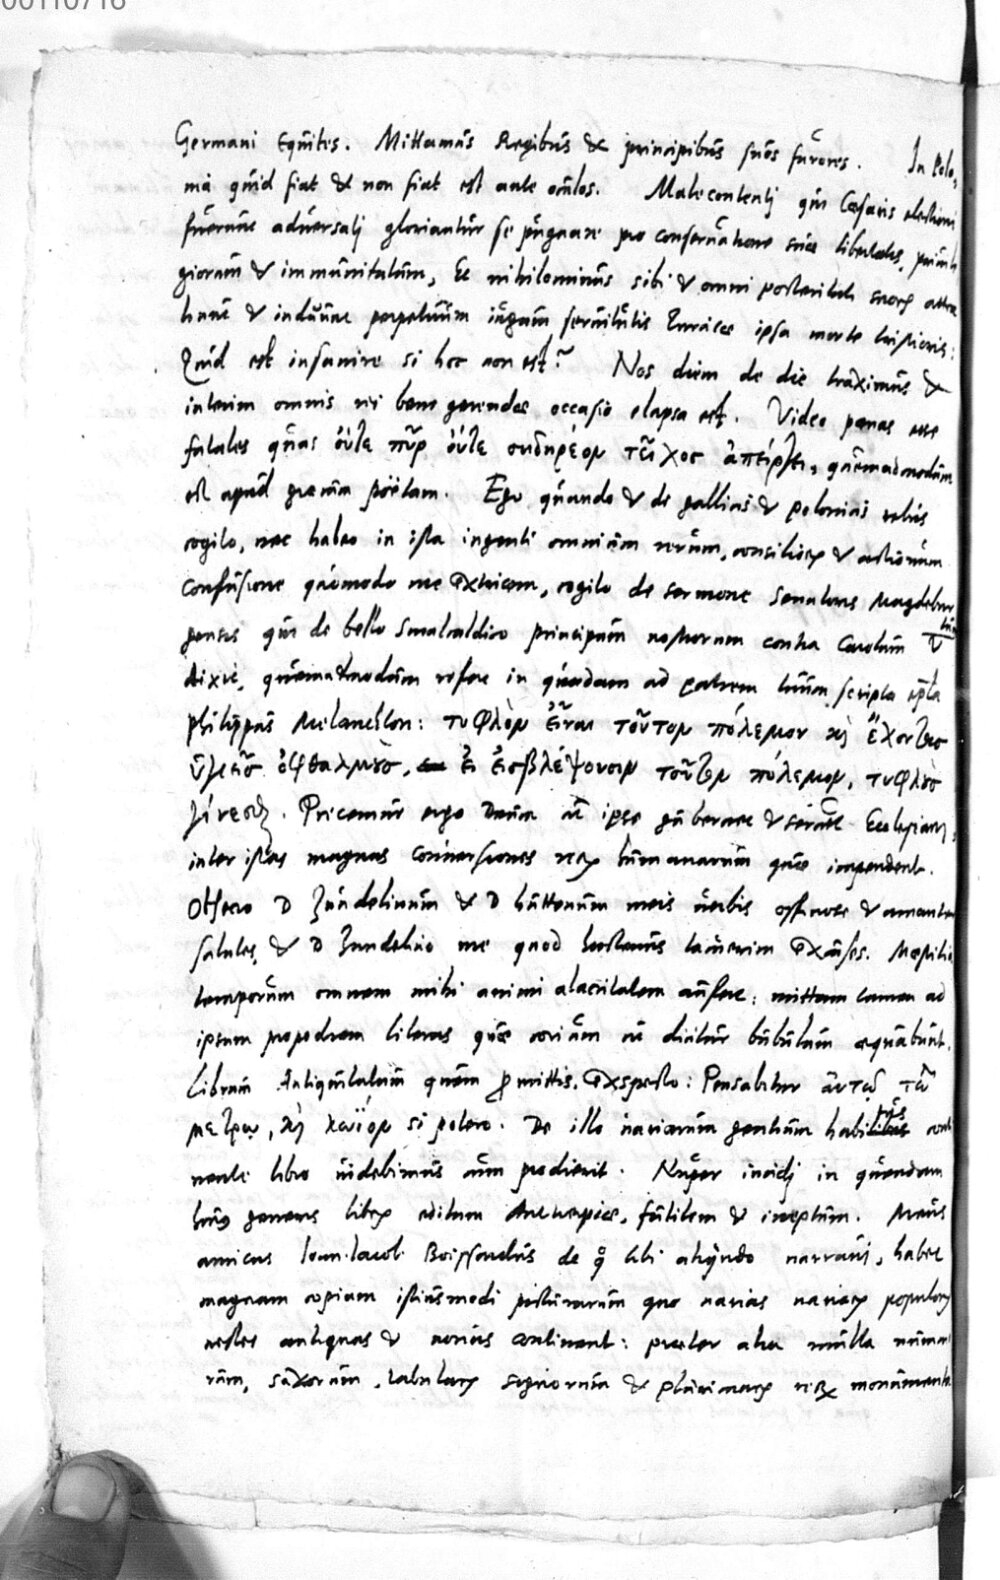 00110716
Germani Equites. Mittamus Regibus & principibus suos furores. In Polo-
nia quid fiat & non fiat est ante oculos. Malecontenti qui Cæsaris electioni
fuerunt adversati gloriantur se pugnare pro conservatione suæ libertatis, privile
giorum & immunitatum, Et nihilominus sibi & omni posteritati suorum attra
hunt & induunt perpetuum iugum servitutis Turcicæ ipsa morte tristioris:
Quid est insanire si hoc non est? Nos diem de die traximus &
interim omnis rei bene gerendæ occasio elapsa est. Video pœnas esse
fatales quas οὔτε πῦρ οὔτε σιδήρεον τεῖχος ἀπείρξει, quemadmodum
est apud poëtam. Ego quando & de gallicis & polonicis rebus
cogito, nec habeo in ista ingenti omnium rerum, consiliorum & actionum
confusione quomodo me extricem, cogito de sermone senatoris Magdebur
gensis qui de bello Smalcaldico principum nostrorum contra Carolum V
dixit, quemadmodum refert in quadam ad patrem tuum scripta epistola
Philippus Melancthon: τυφλὸν εἶναι τοῦτον πόλεμον καὶ ἔχοντας
ὑμεῖς ὀφθαλμοὺς, εἰ εἰσβλέψουσιν τοῦτον πόλεμον, τυφλοὺς
γίνεσθαι. Precemur ergo Deum ut ipse gubernet & servet Ecclesiam,
inter istas magnas conversiones rerum humanarum quæ impendent.
Obsecro D Zundelinum & D huttenum meis verbis officiose & amanter
salutes, & D Zundelino me quod hactenus tacuerim excuses. Mœstitia
temporum omnem mihi animi alacritatem aufert: mittam tamen ad
ipsum propediem literas quæ coriam ut dicitur bubulum æquabunt.
Librum Antiquitatum quem promittis, exspecto: Pensabitur αὐτῷ τῷ
μέτρῳ, καὶ λώϊον si potero. De illo variarum gentium habitus conti
nente libro videbimus cum prodierit. Nuper incidi in quendam
huius generis librum editum Antwerpiæ, futilem & ineptum. Meus
amicus Ioan. Iacob. Boissardus de quo tibi aliquando narravi, habet
magnam copiam istiusmodi picturarum quæ varias variorum populorum
vestes antiquas & novas continent: præter alia multa numma
rum, saxorum, tabularum signorum & plurimarum rerum monumenta